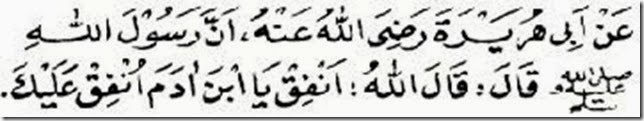 عَنْ اَبِى هُرَيْرَةَ رَضِىَ اللهُ عَنْهُ، اَنَّ رَسُوْلَ اللهِ
صلى الله عليه وسلم قَالَ: قَالَ اللهُ: اَنْفِقْ يَا ابْنَ اٰدَمَ اُنْفِقْ عَلَيْكَ.